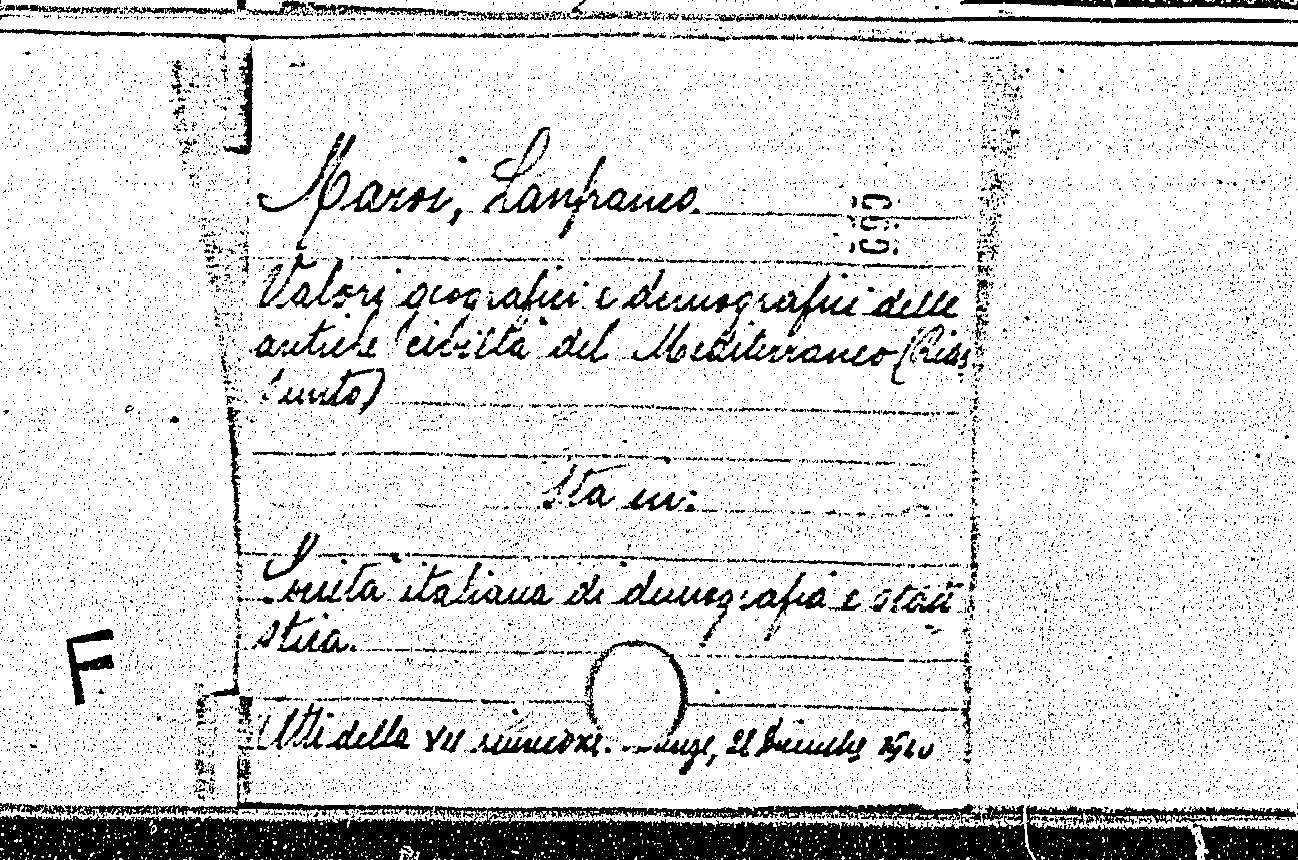 Maroi, Lanfranco.
Valori geografici e demografici delle
antiche civiltà del Mediterraneo (Rias
sunto)
Sta in:
Società italiana di demografia e stati
stica.
Atti della VII riunione. 21 Dicembre 1940
F